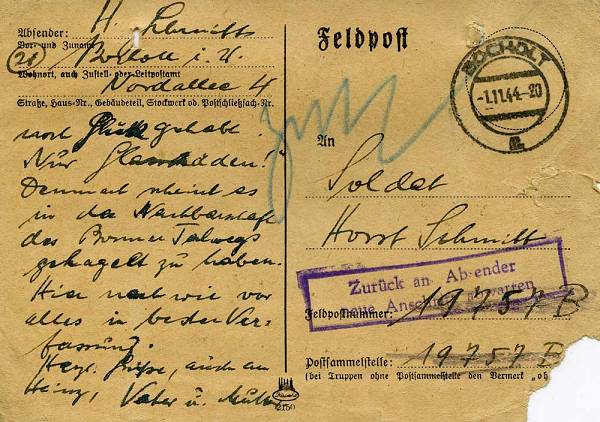 Absender: H. Schmitt
Vor- und Zuname
(21) Bocholt i. W.
Wohnort, auch Zustell- oder Leitpostamt
Nordallee 4
Straße, Haus-Nr., Gebäudeteil, Stockwerk od. Postschließfach-Nr.
noch Glück gehabt.
Nur Glasschäden!
Demnach scheint es
in der Nachbarschaft
des Bonner Talwegs
gehagelt zu haben.
Hier nach wie vor
alles in bester Ver-
fassung.
Herzl. Grüße, auch an
Heinz, Vater u. Mutter
Feldpost
BOCHOLT
-1.11.44.-20
An
Soldat
Horst Schmitt
Zurück an Absender
neue Anschrift abwarten
Feldpostnummer: 19757 B
Postsammelstelle: 19757 B
(bei Truppen ohne Postsammelstelle den Vermerk „ob
2150